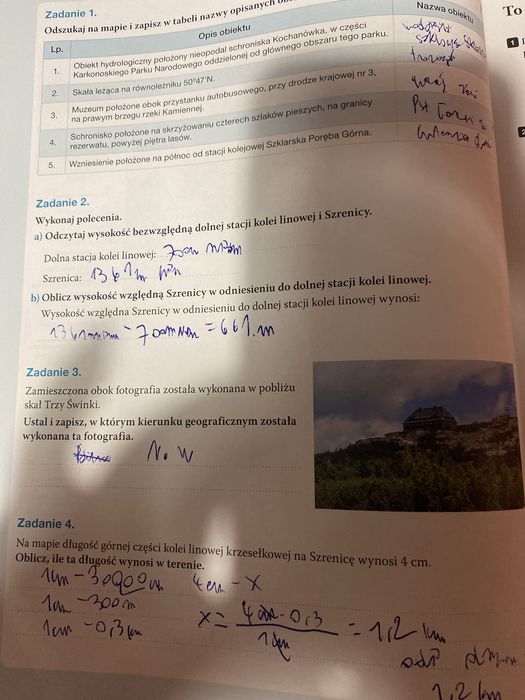 Zadanie 1.
Odszukaj na mapie i zapisz w tabeli nazwy opisanych
Lp.
Opis obiektu
Nazwa obiektu
To
1.
Obiekt hydrologiczny położony nieopodal schroniska Kochanówka, w części
Karkonoskiego Parku Narodowego oddzielonej od głównego obszaru tego parku.
2.
Skała leżąca na równoleżniku 50°47'N.
3.
Muzeum położone obok przystanku autobusowego, przy drodze krajowej nr 3,
na prawym brzegu rzeki Kamiennej.
4.
Schronisko położone na skrzyżowaniu czterech szlaków pieszych, na granicy
rezerwatu, powyżej piętra lasów.
5.
Wzniesienie położone na północ od stacji kolejowej Szklarska Poręba Górna.
Zadanie 2.
Wykonaj polecenia.
a) Odczytaj wysokość bezwzględną dolnej stacji kolei linowej i Szrenicy.
Dolna stacja kolei linowej: 700m npm
Szrenica: 1361m npm
b) Oblicz wysokość względną Szrenicy w odniesieniu do dolnej stacji kolei linowej.
Wysokość względna Szrenicy w odniesieniu do dolnej stacji kolei linowej wynosi:
1361m npm - 700m npm = 661 m
Zadanie 3.
Zamieszczona obok fotografia została wykonana w pobliżu
skał Trzy Świnki.
Ustal i zapisz, w którym kierunku geograficznym została
wykonana ta fotografia.
N. W
Zadanie 4.
Na mapie długość górnej części kolei linowej krzesełkowej na Szrenicę wynosi 4 cm.
Oblicz, ile ta długość wynosi w terenie.
1cm - 30000cm
4cm - x
1cm - 300m
1cm - 0,3km
x = 4cm · 0,3 / 1cm = 1,2 km
1,2 km